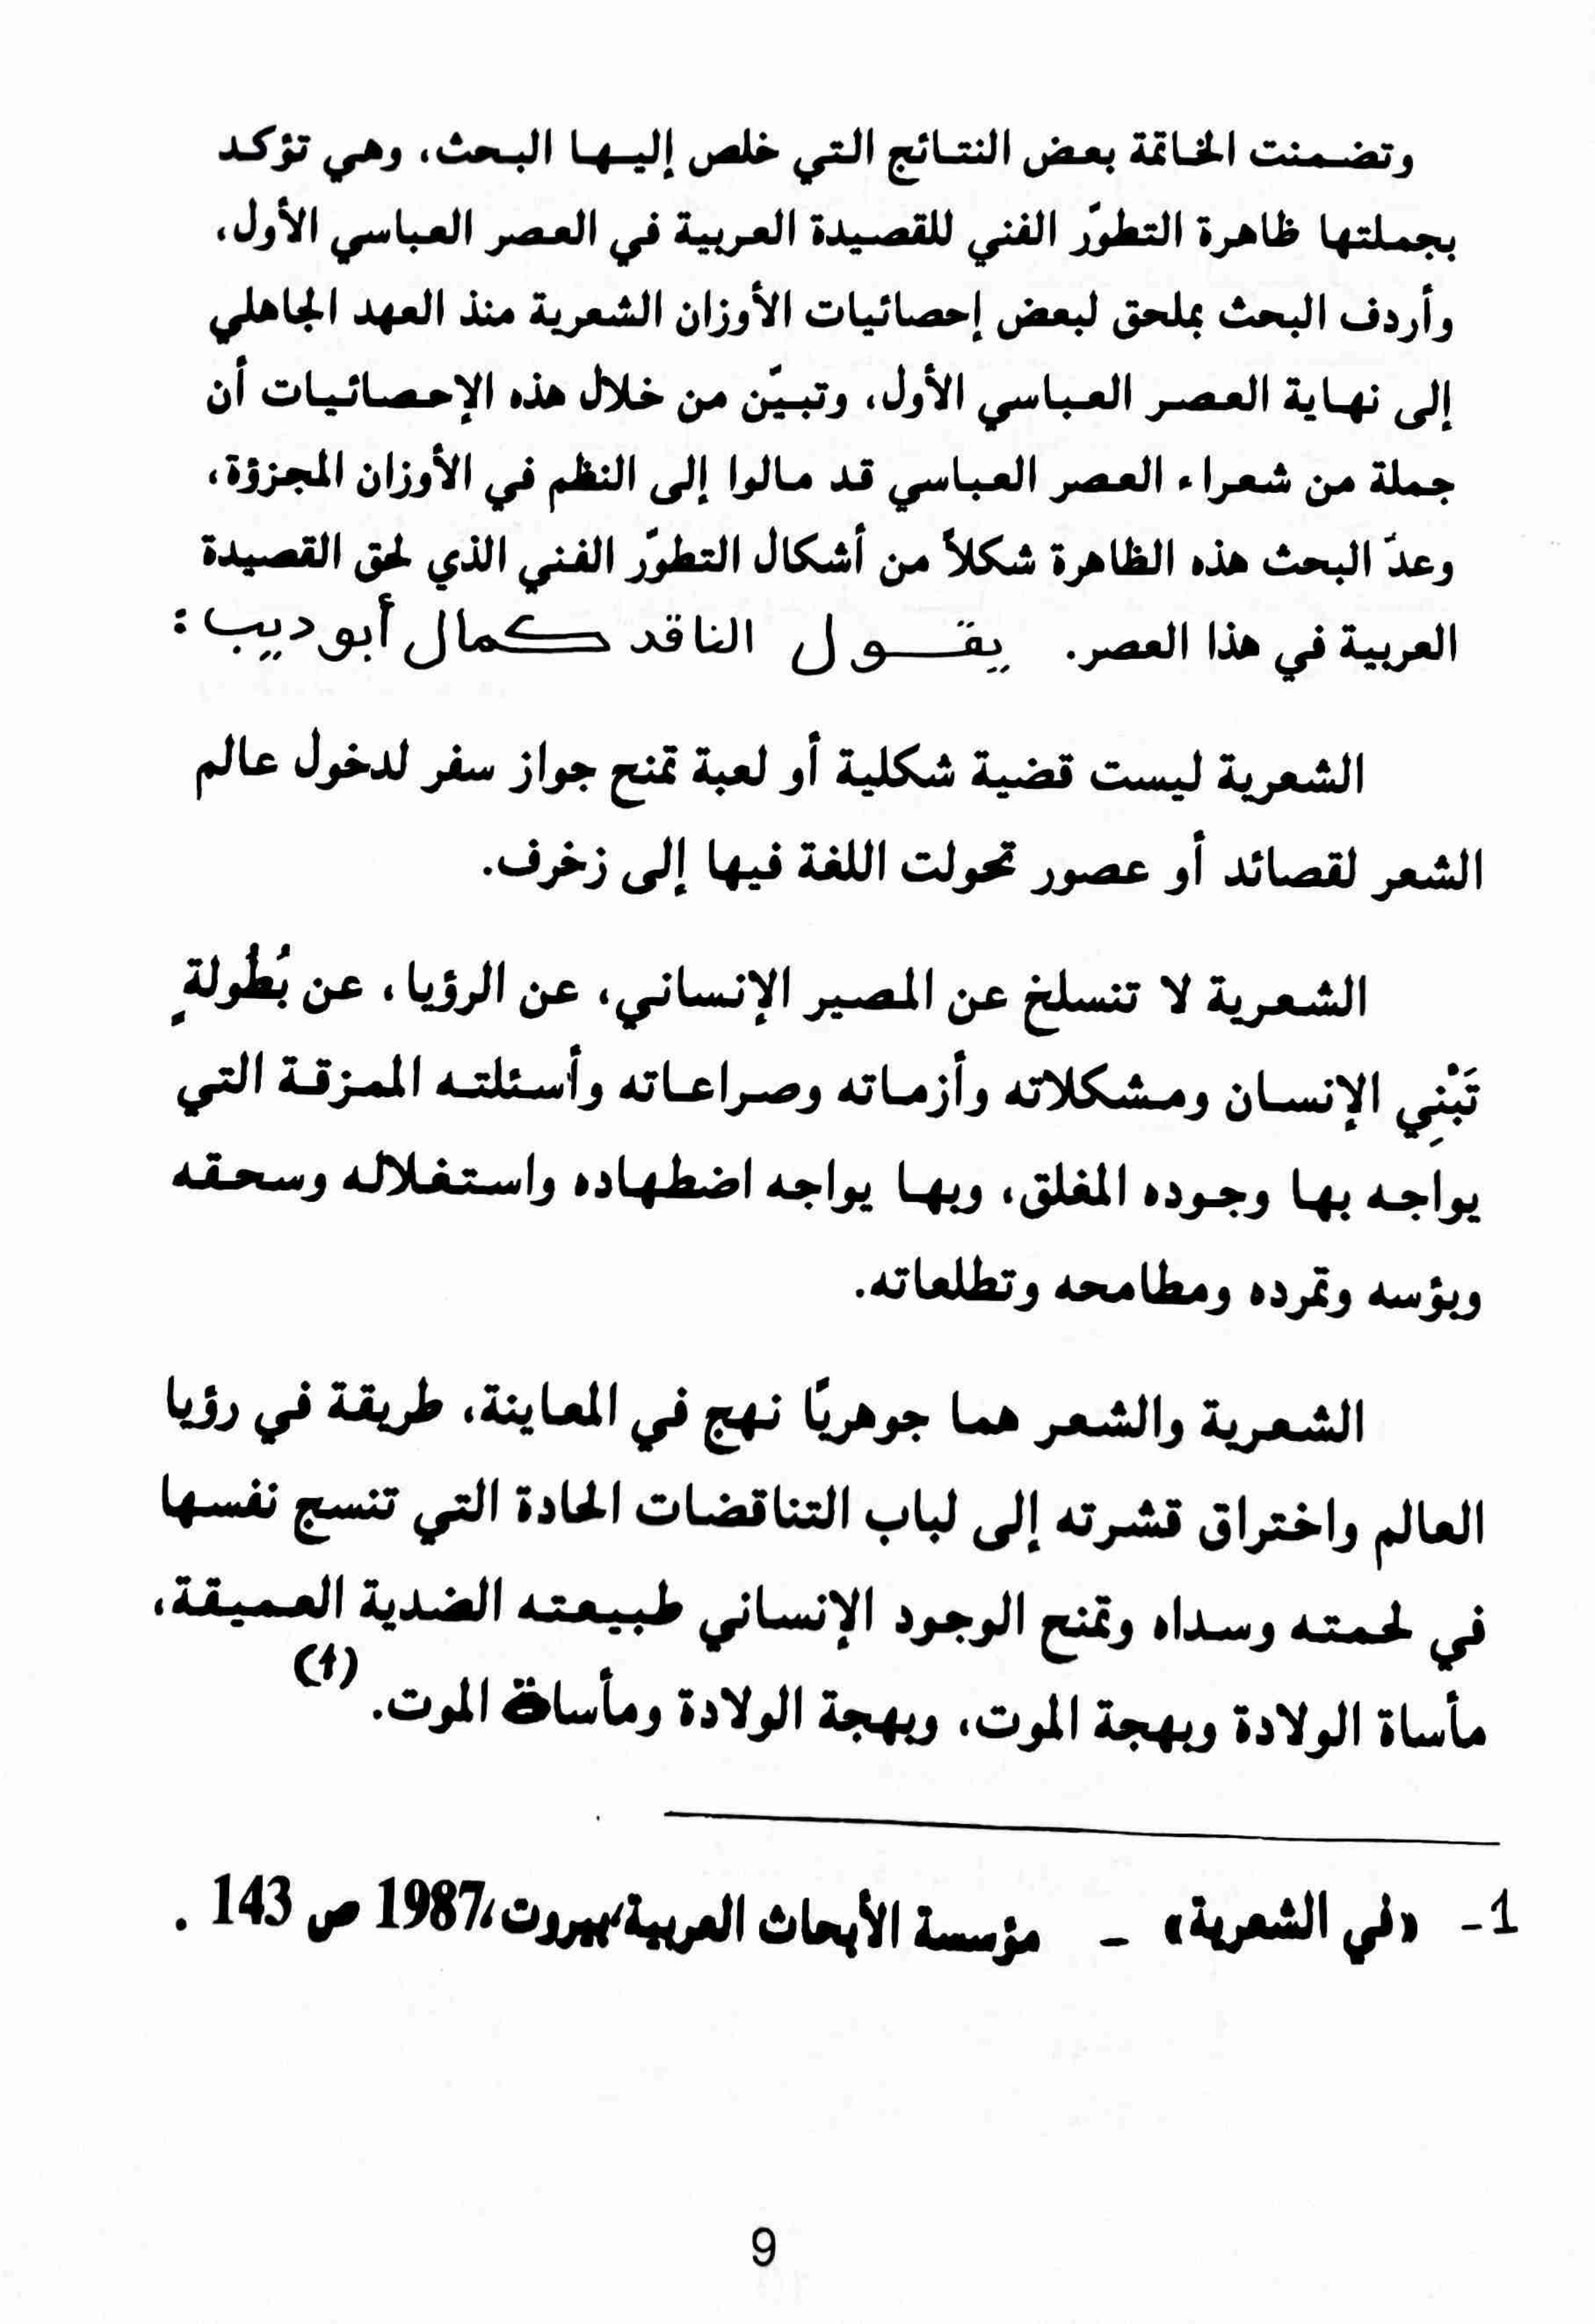 وتضمنت الخاتمة بعض النتائج التي خلص إليها البحث، وهي تؤكد
بجملتها ظاهرة التطوّر الفني للقصيدة العربية في العصر العباسي الأول،
وأردف البحث بملحق لبعض إحصائيات الأوزان الشعرية منذ العهد الجاهلي
إلى نهاية العصر العباسي الأول، وتبيّن من خلال هذه الإحصائيات أن
جملة من شعراء العصر العباسي قد مالوا إلى النظم في الأوزان المجزؤة،
وعدّ البحث هذه الظاهرة شكلاً من أشكال التطوّر الفني الذي لحق القصيدة
العربية في هذا العصر. يقول الناقد كمال أبو ديب :
الشعرية ليست قضية شكلية أو لعبة تمنح جواز سفر لدخول عالم
الشعر لقصائد أو عصور تحولت اللغة فيها إلى زخرف.
الشعرية لا تنسلخ عن المصير الإنساني، عن الرؤيا، عن بُطُولةٍ
تَبْنِي الإنسان ومشكلاته وأزماته وصراعاته وأسئلته الممزقة التي
يواجه بها وجوده المغلق، وبها يواجه اضطهاده واستغلاله وسحقه
وبؤسه وتمرده ومطامحه وتطلعاته.
الشعرية والشعر هما جوهريًا نهج في المعاينة، طريقة في رؤيا
العالم واختراق قشرته إلى لباب التناقضات الحادة التي تنسج نفسها
في لحمته وسداه وتمنح الوجود الإنساني طبيعته الضدية العميقة،
مأساة الولادة وبهجة الموت، وبهجة الولادة ومأساة الموت. (1)
1- «في الشعرية» - مؤسسة الأبحاث العربية، بيروت، 1987 ص 143 .
9